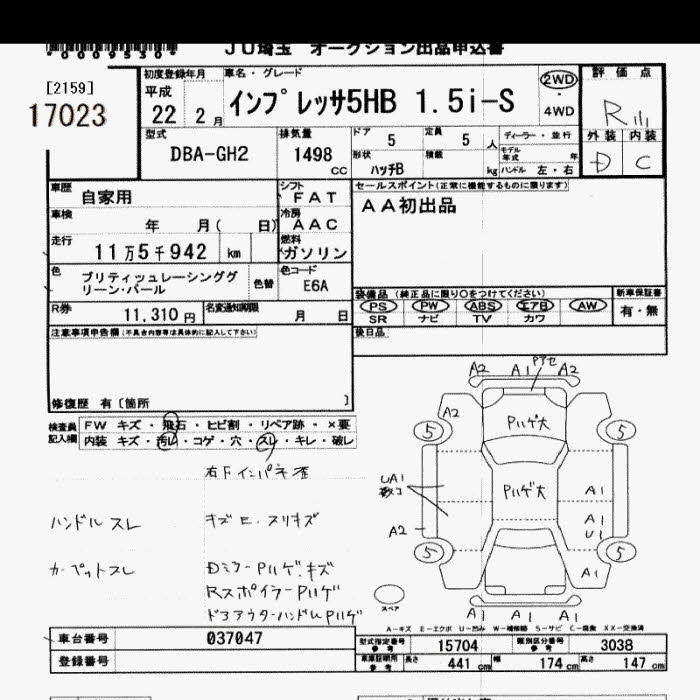 *0009530*
JU埼玉 オークション出品申込書
[2159]
17023
初度登録年月
平成
22 2月
車名・グレード
インプレッサ5HB 1.5i-S
2WD
・
4WD
評価点
R
外装 内装
D C
型式
DBA-GH2
排気量
1498
CC
ドア 5
定員 5 人
形状
ハッチB
積載
kg
ディーラー・並行
モデル年式 年
ハンドル 左・右
車歴
自家用
シフト
FAT
車検
年 月( 日)
冷房
AAC
走行
11万5千942 km
燃料
ガソリン
色
ブリティッシュレーシンググリーン・パール
色替
色コード
E6A
R券
11,310 円
名変通知期限
月 日
セールスポイント(正常に機能するものに限ります)
AA初出品
装備品 (純正品に限り○をつけてください)
PS PW ABS エアB AW
SR ナビ TV カワ
新車保証書
有・無
後日品
注意事項申告欄(不具合内容等は具体的に記入して下さい)
修復歴 有〔箇所 〕
検査員記入欄
FW キズ・飛石・ヒビ割・リペア跡・×要
内装 キズ・汚レ・コゲ・穴・スレ・キレ・破レ
右Fインパネ歪
ハンドルスレ
キズE・スリキズ
カーペットスレ
DミラーPハゲ、キズ
RスポイラーPハゲ
ドアアウターハンドルPハゲ
A2 A1 Pアセ A2
A2
Pハゲ大
5 5
UA1
数コ
Pハゲ大
A1
A1
U1
A2
5 5
A1
スペア
A1 A1 A1
A-キズ E-エクボ U-凹み W-補修跡 S-サビ C-腐食 XX-交換済
車台番号
037047
登録番号
型式指定番号
参考
15704
類別区分番号
参考
3038
車庫証明用
参考
長さ 441 cm
幅 174 cm
高さ 147 cm